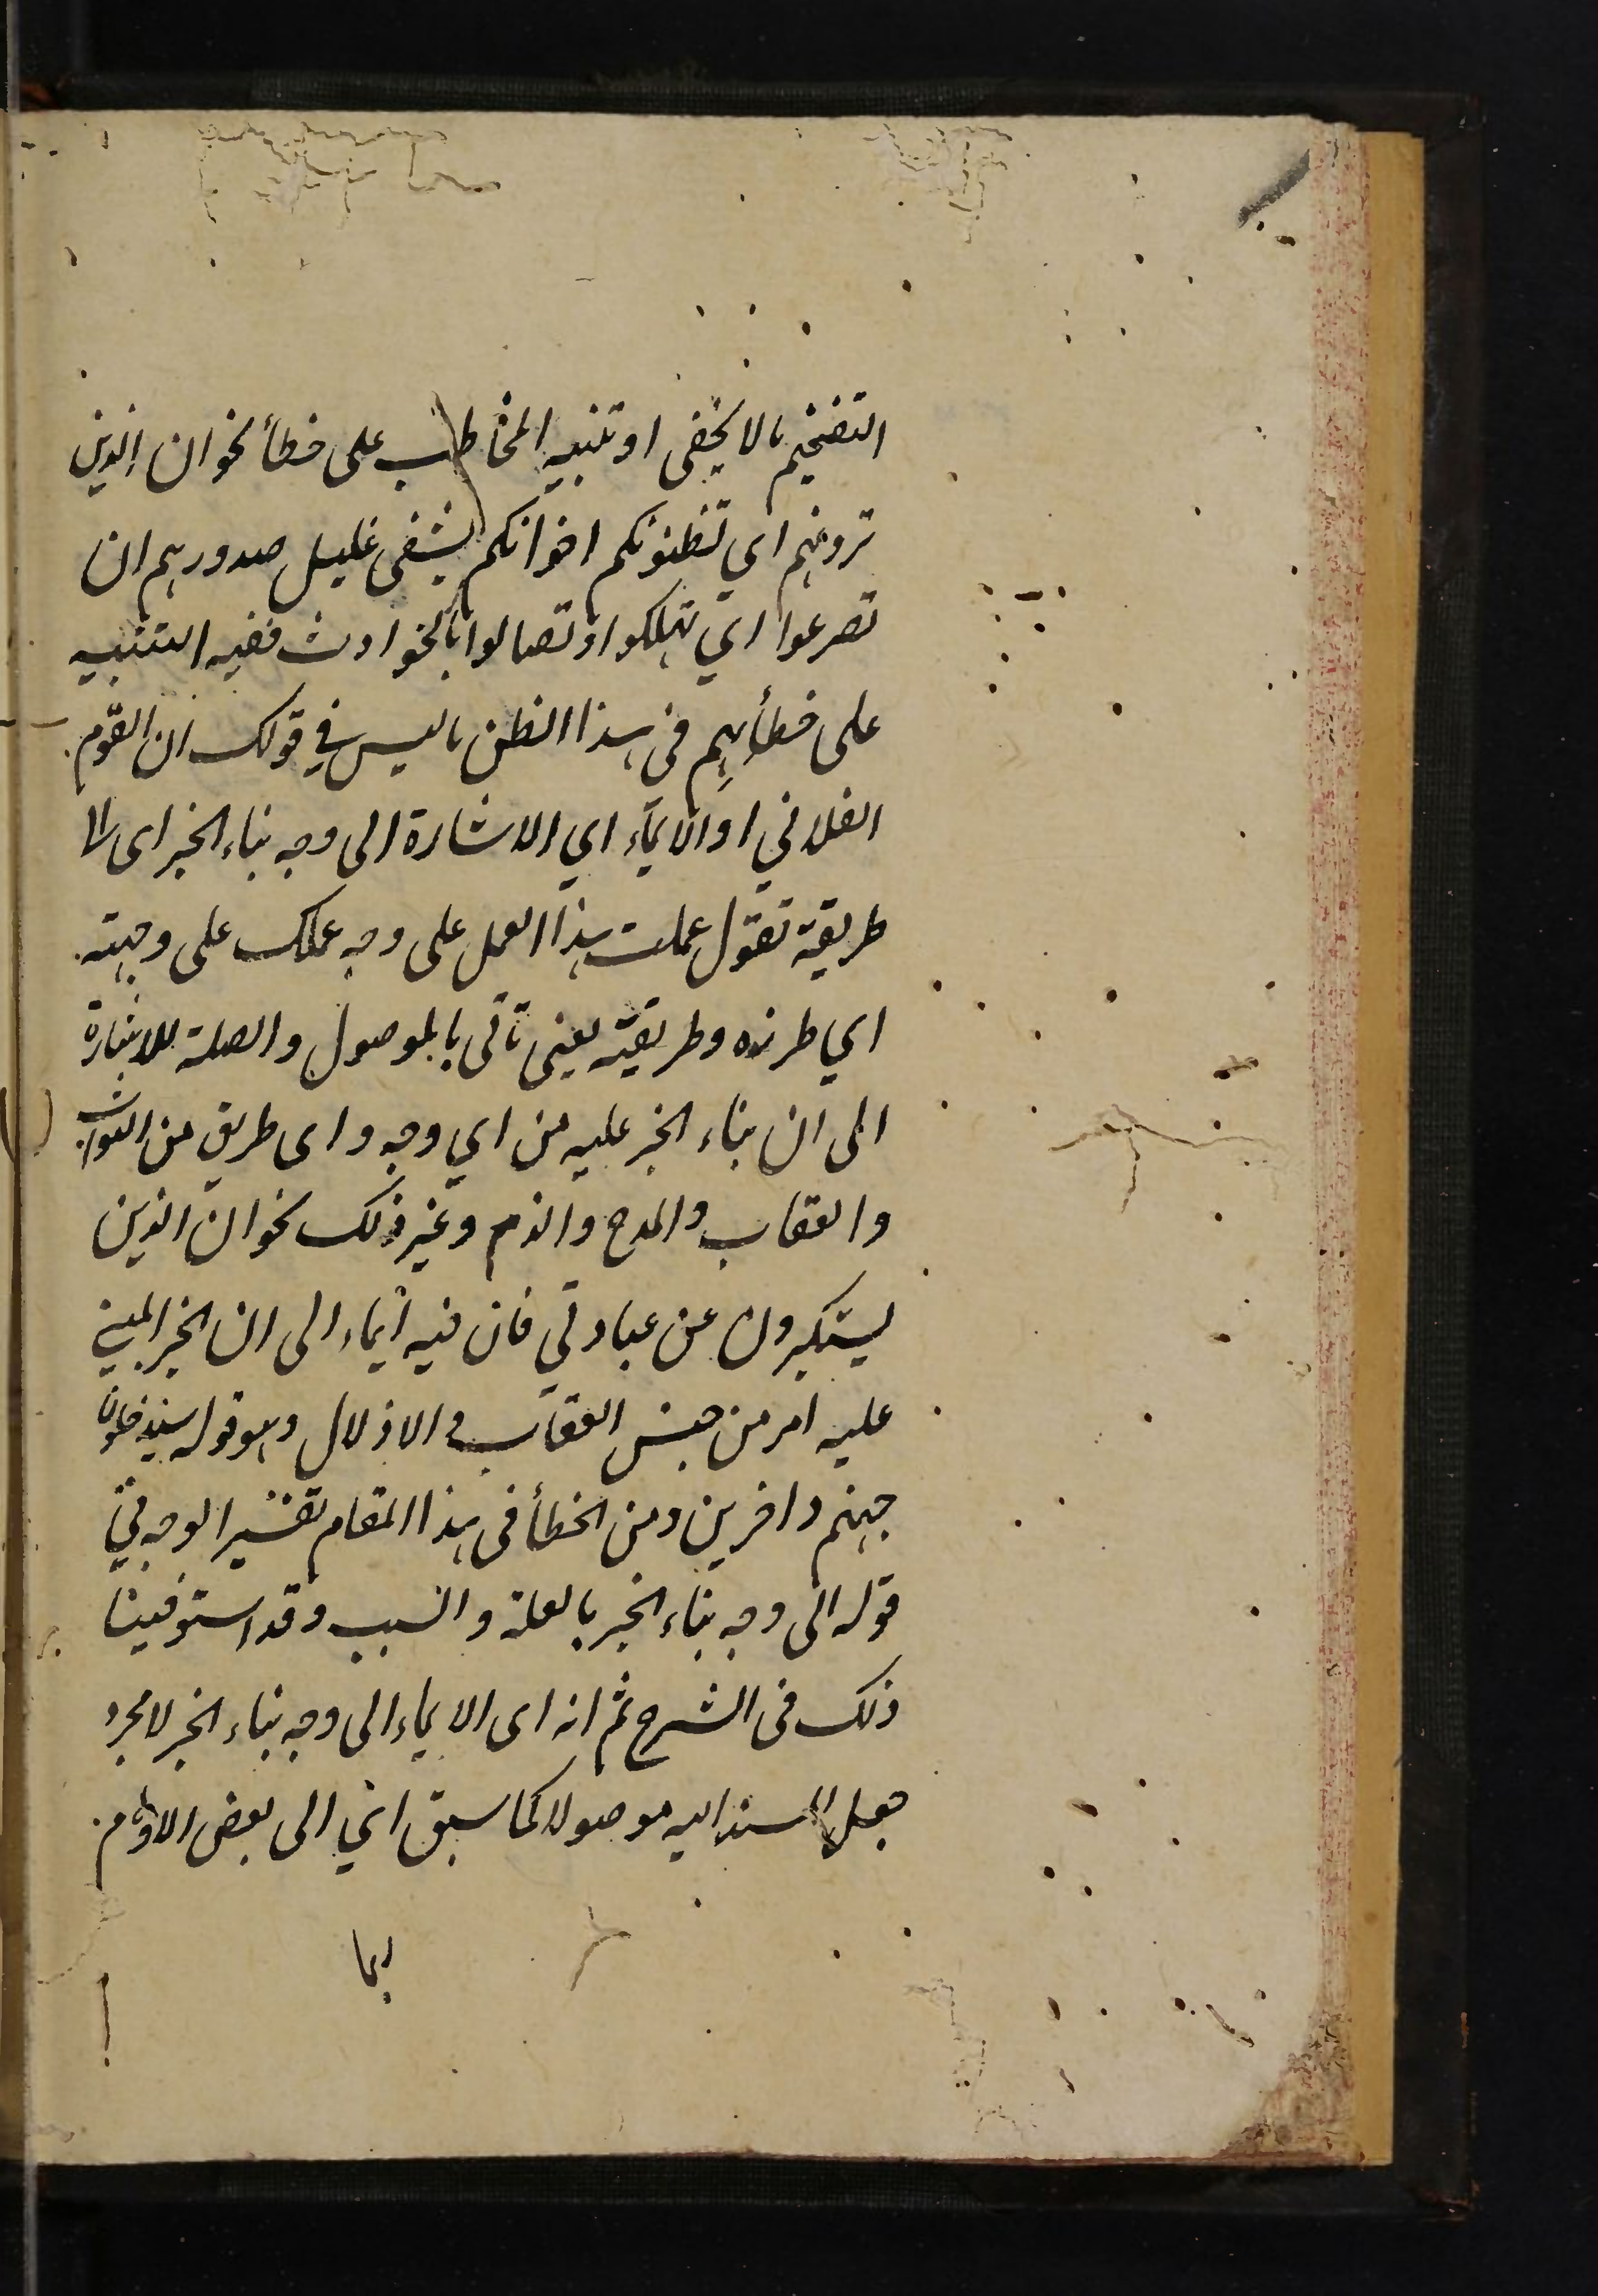 التفخيم مالا يخفى او تنبيه المخاطب على خطأ نحو ان الذين
ترونهم اي تظنونكم اخوانكم يشفى غليل صدورهم ان
تصرعوا اي تهلكوا وتصابوا بالحوادث ففيه التنبيه
على خطأهم فى هذا الظن ماليس في قولك ان القوم
الفلاني او الايماء اي الاشارة الى وجه بناء الخبر اى الى
طريقة تقول عملت هذا العمل على وجه عملك على وجهته
اي طرزه وطريقته يعنى تأتى بالموصول والصلة للاشارة
الى ان بناء الخبر عليه من اي وجه واى طريق من الثواب
والعقاب والمدح والذم وغير ذلك نحو ان الذين
يستكبرون عن عبادتي فان فيه ايماء الى ان الخبر المبني
عليه امر من جنس العقاب والاذلال وهو قوله سيدخلون
جهنم داخرين ومن الخطأ فى هذا المقام تفسير الوجه في
قوله الى وجه بناء الخبر بالعلة والسبب وقد استوفينا
ذلك فى الشرح ثم انه اى الايماء الى وجه بناء الخبر لا مجرد
جعل المسند اليه موصولا كما سبق الى بعض الاوهام